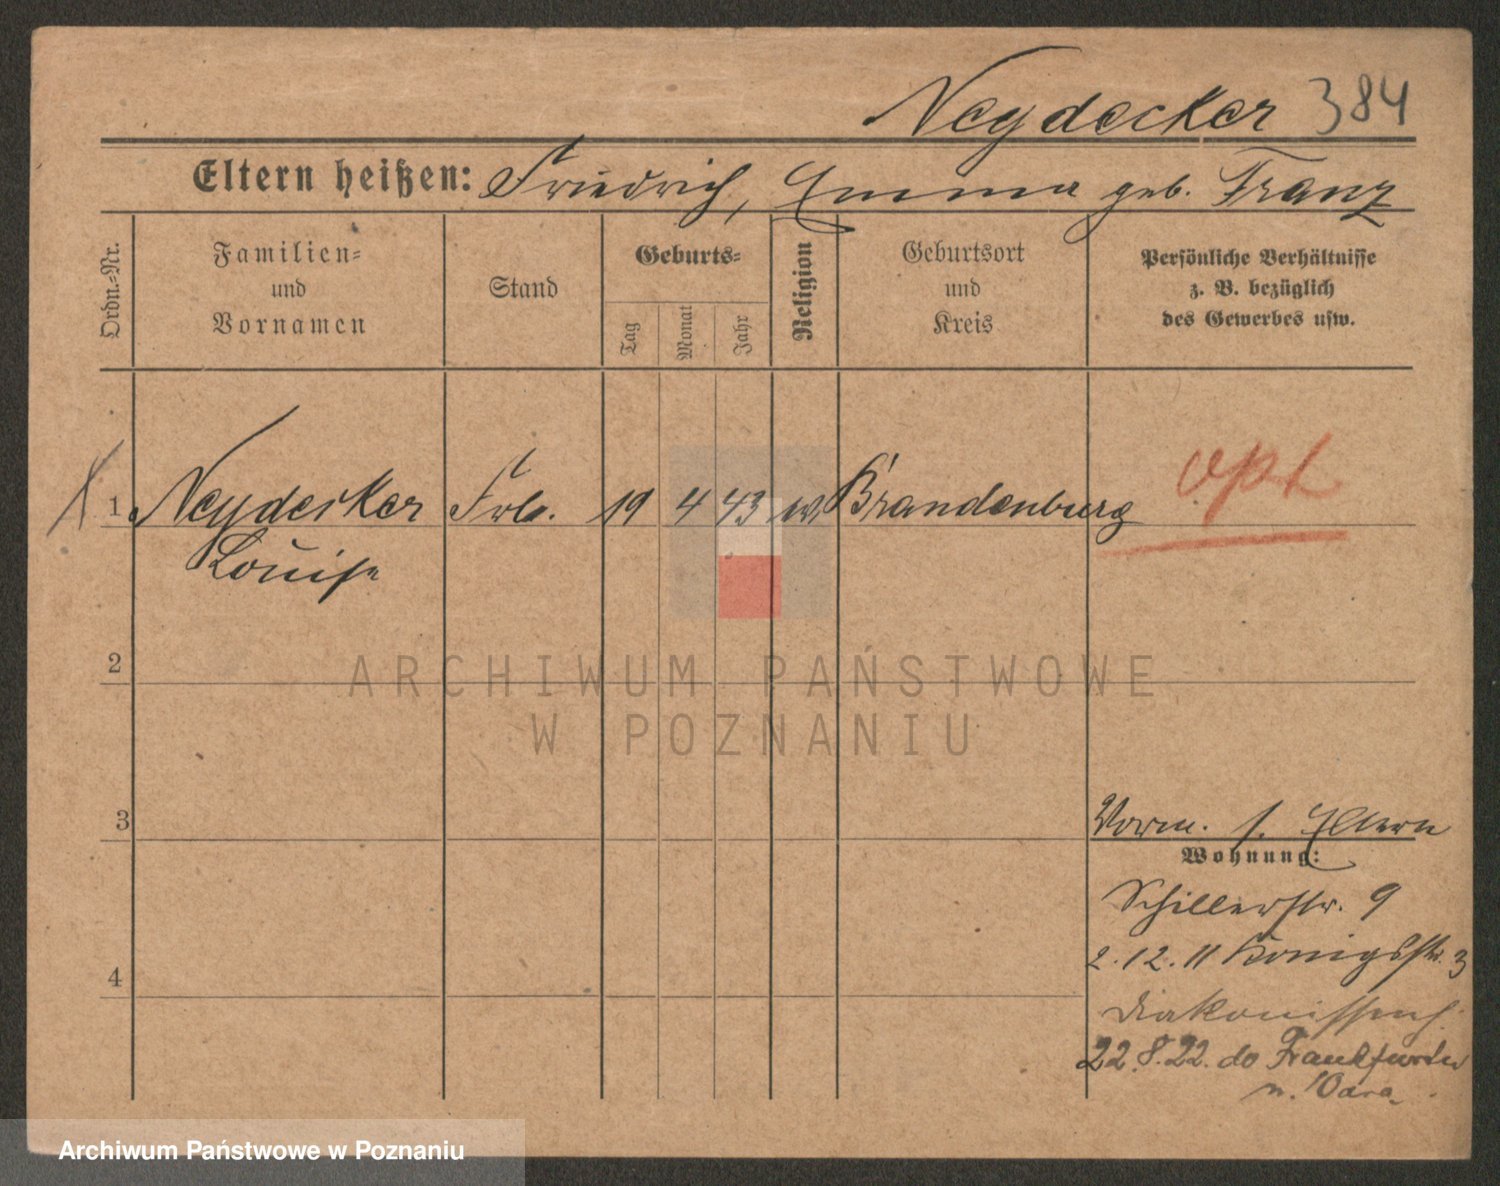 Neydecker 384
Eltern heißen: Friedrich, Emma geb. Franz
Ordn.-Nr.
Familien-
und
Vornamen
Stand
Geburts-
Tag
Monat
Jahr
Religion
Geburtsort
und
Kreis
Persönliche Verhältnisse
z. B. bezüglich
des Gewerbes usw.
1 Neydecker 19 4 43 Brandenburg opt
Louise
2
3
Vorm. s. Eltern
Wohnung:
Schillerstr. 9
2.12.11 Königsstr. 3
Diakonissenh.
4
22.8.22. do Frankfurtu
n. Odra
ARCHIWUM PAŃSTWOWE
W POZNANIU
Archiwum Państwowe w Poznaniu